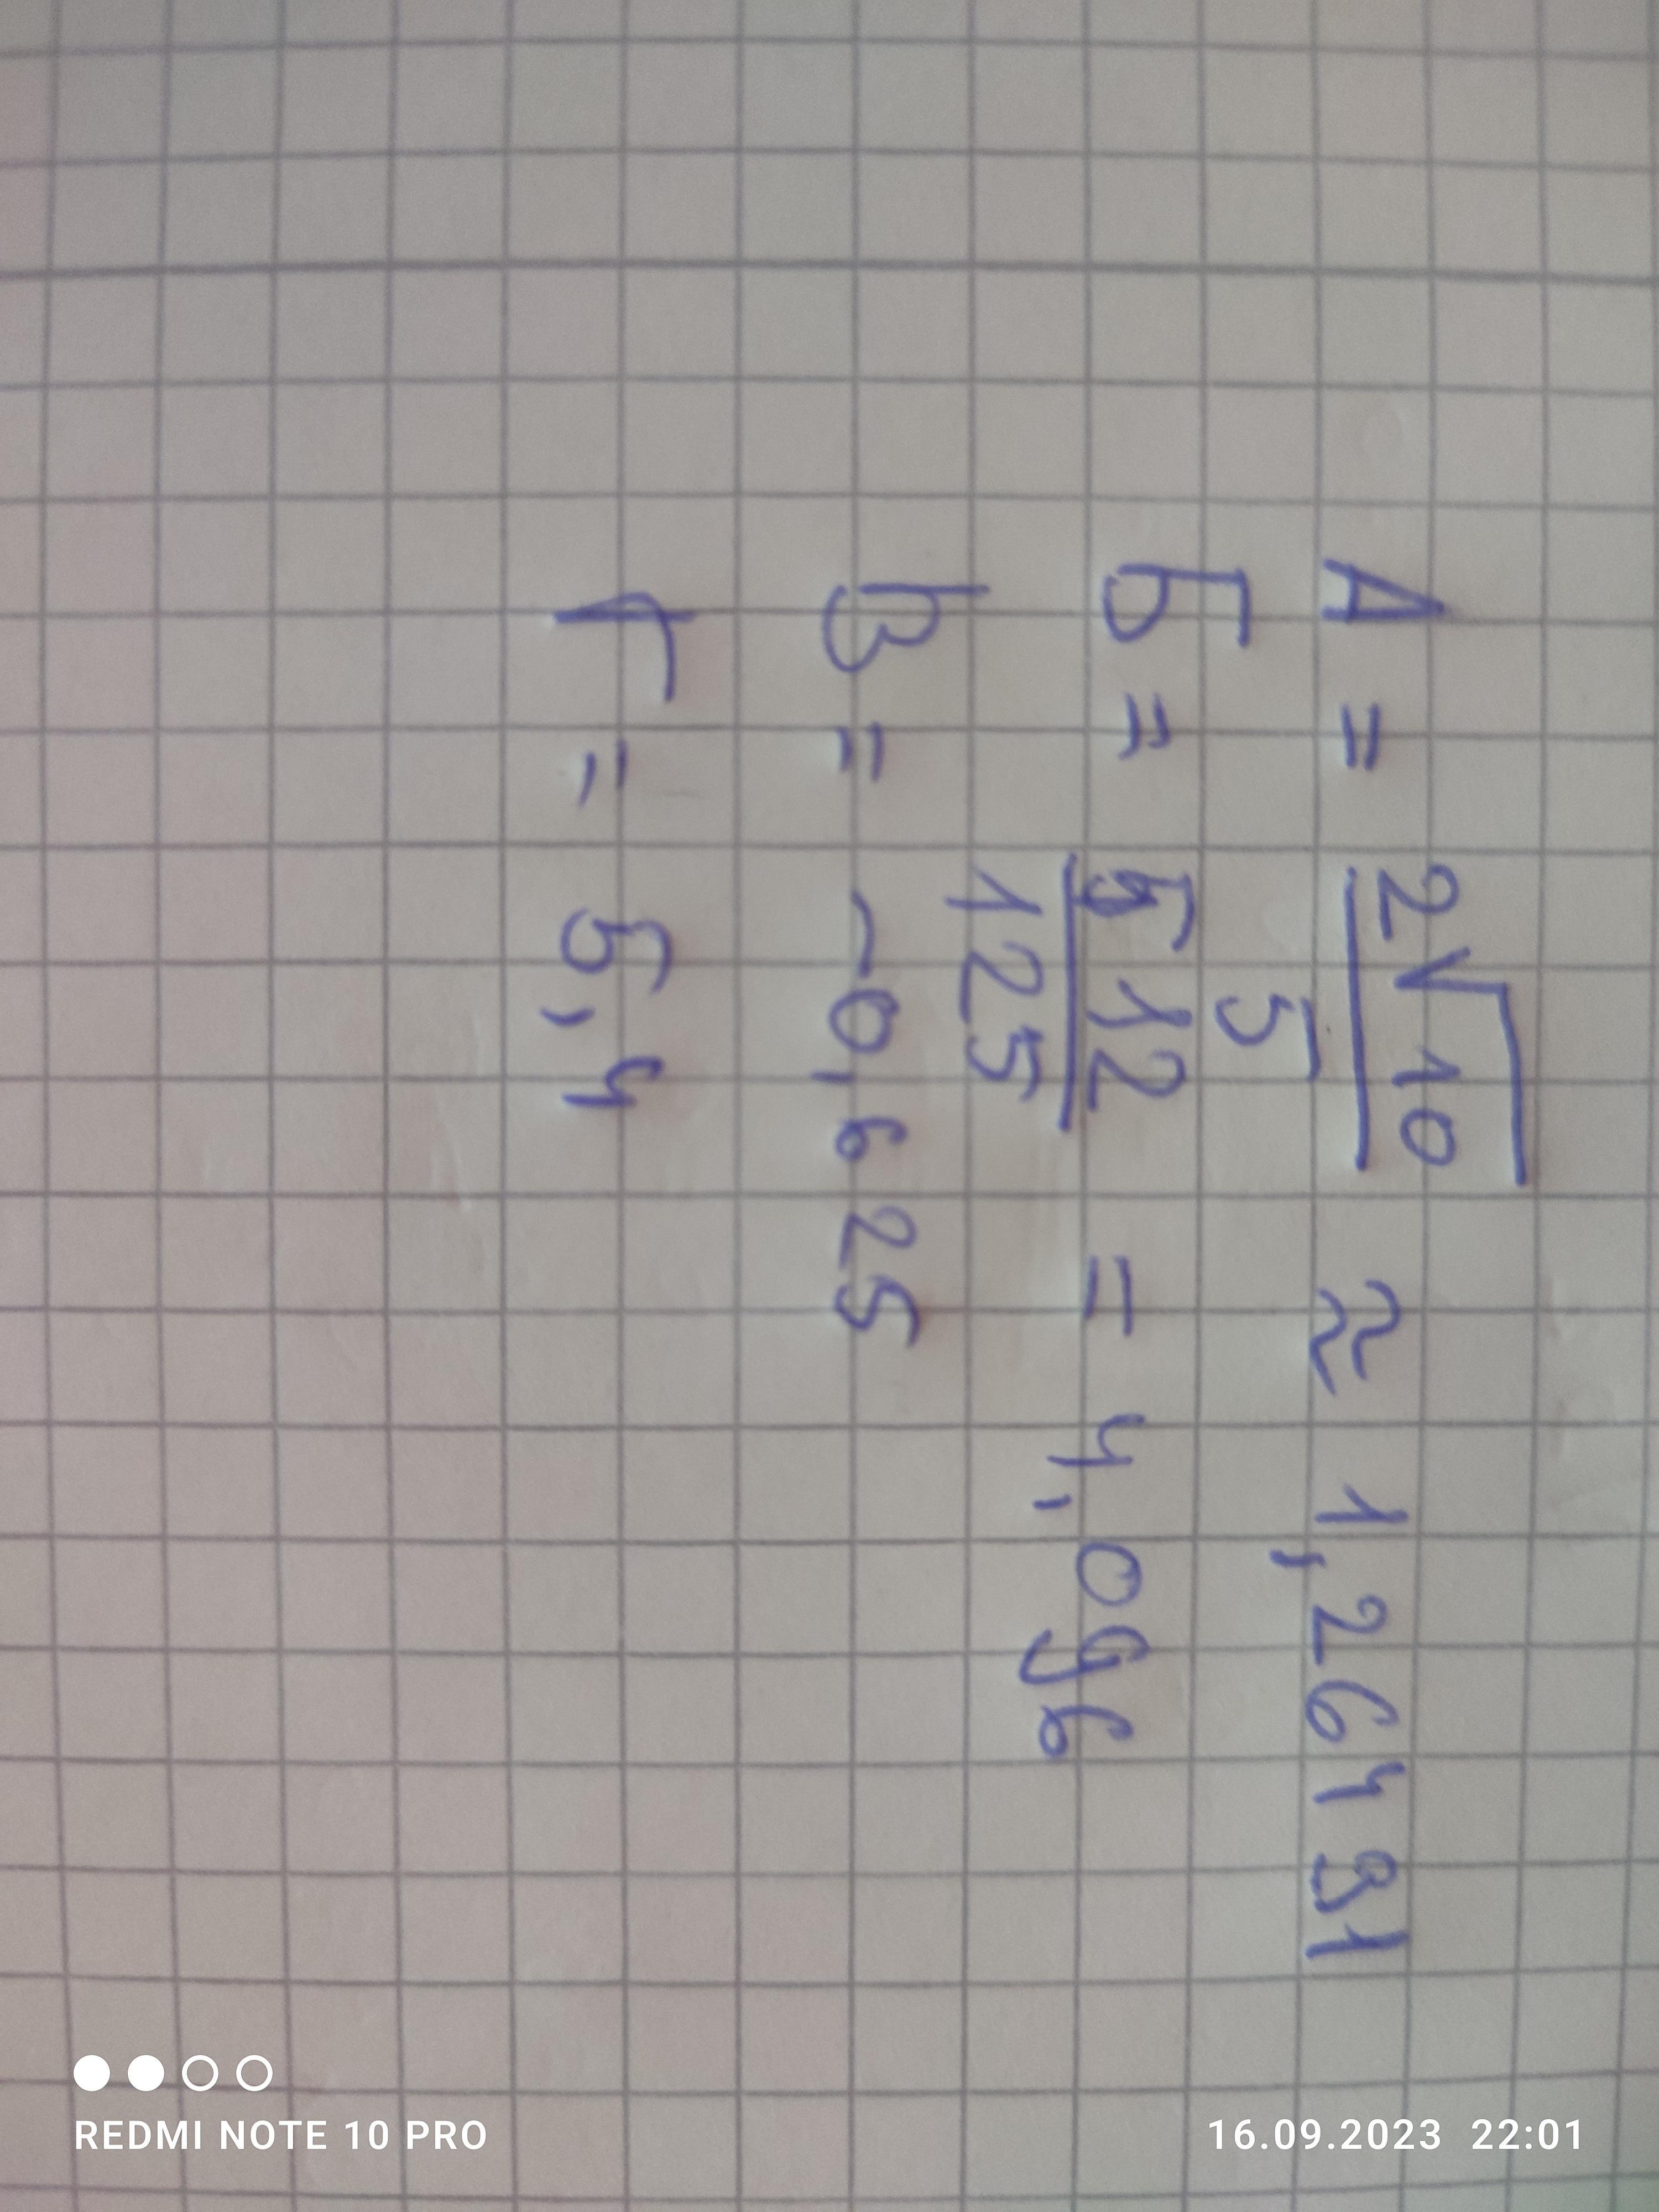 А = 2√10 / 5 ≈ 1,26491
Б = 512 / 125 = 4,096
В = -0,625
Г = 5,4
REDMI NOTE 10 PRO
16.09.2023 22:01